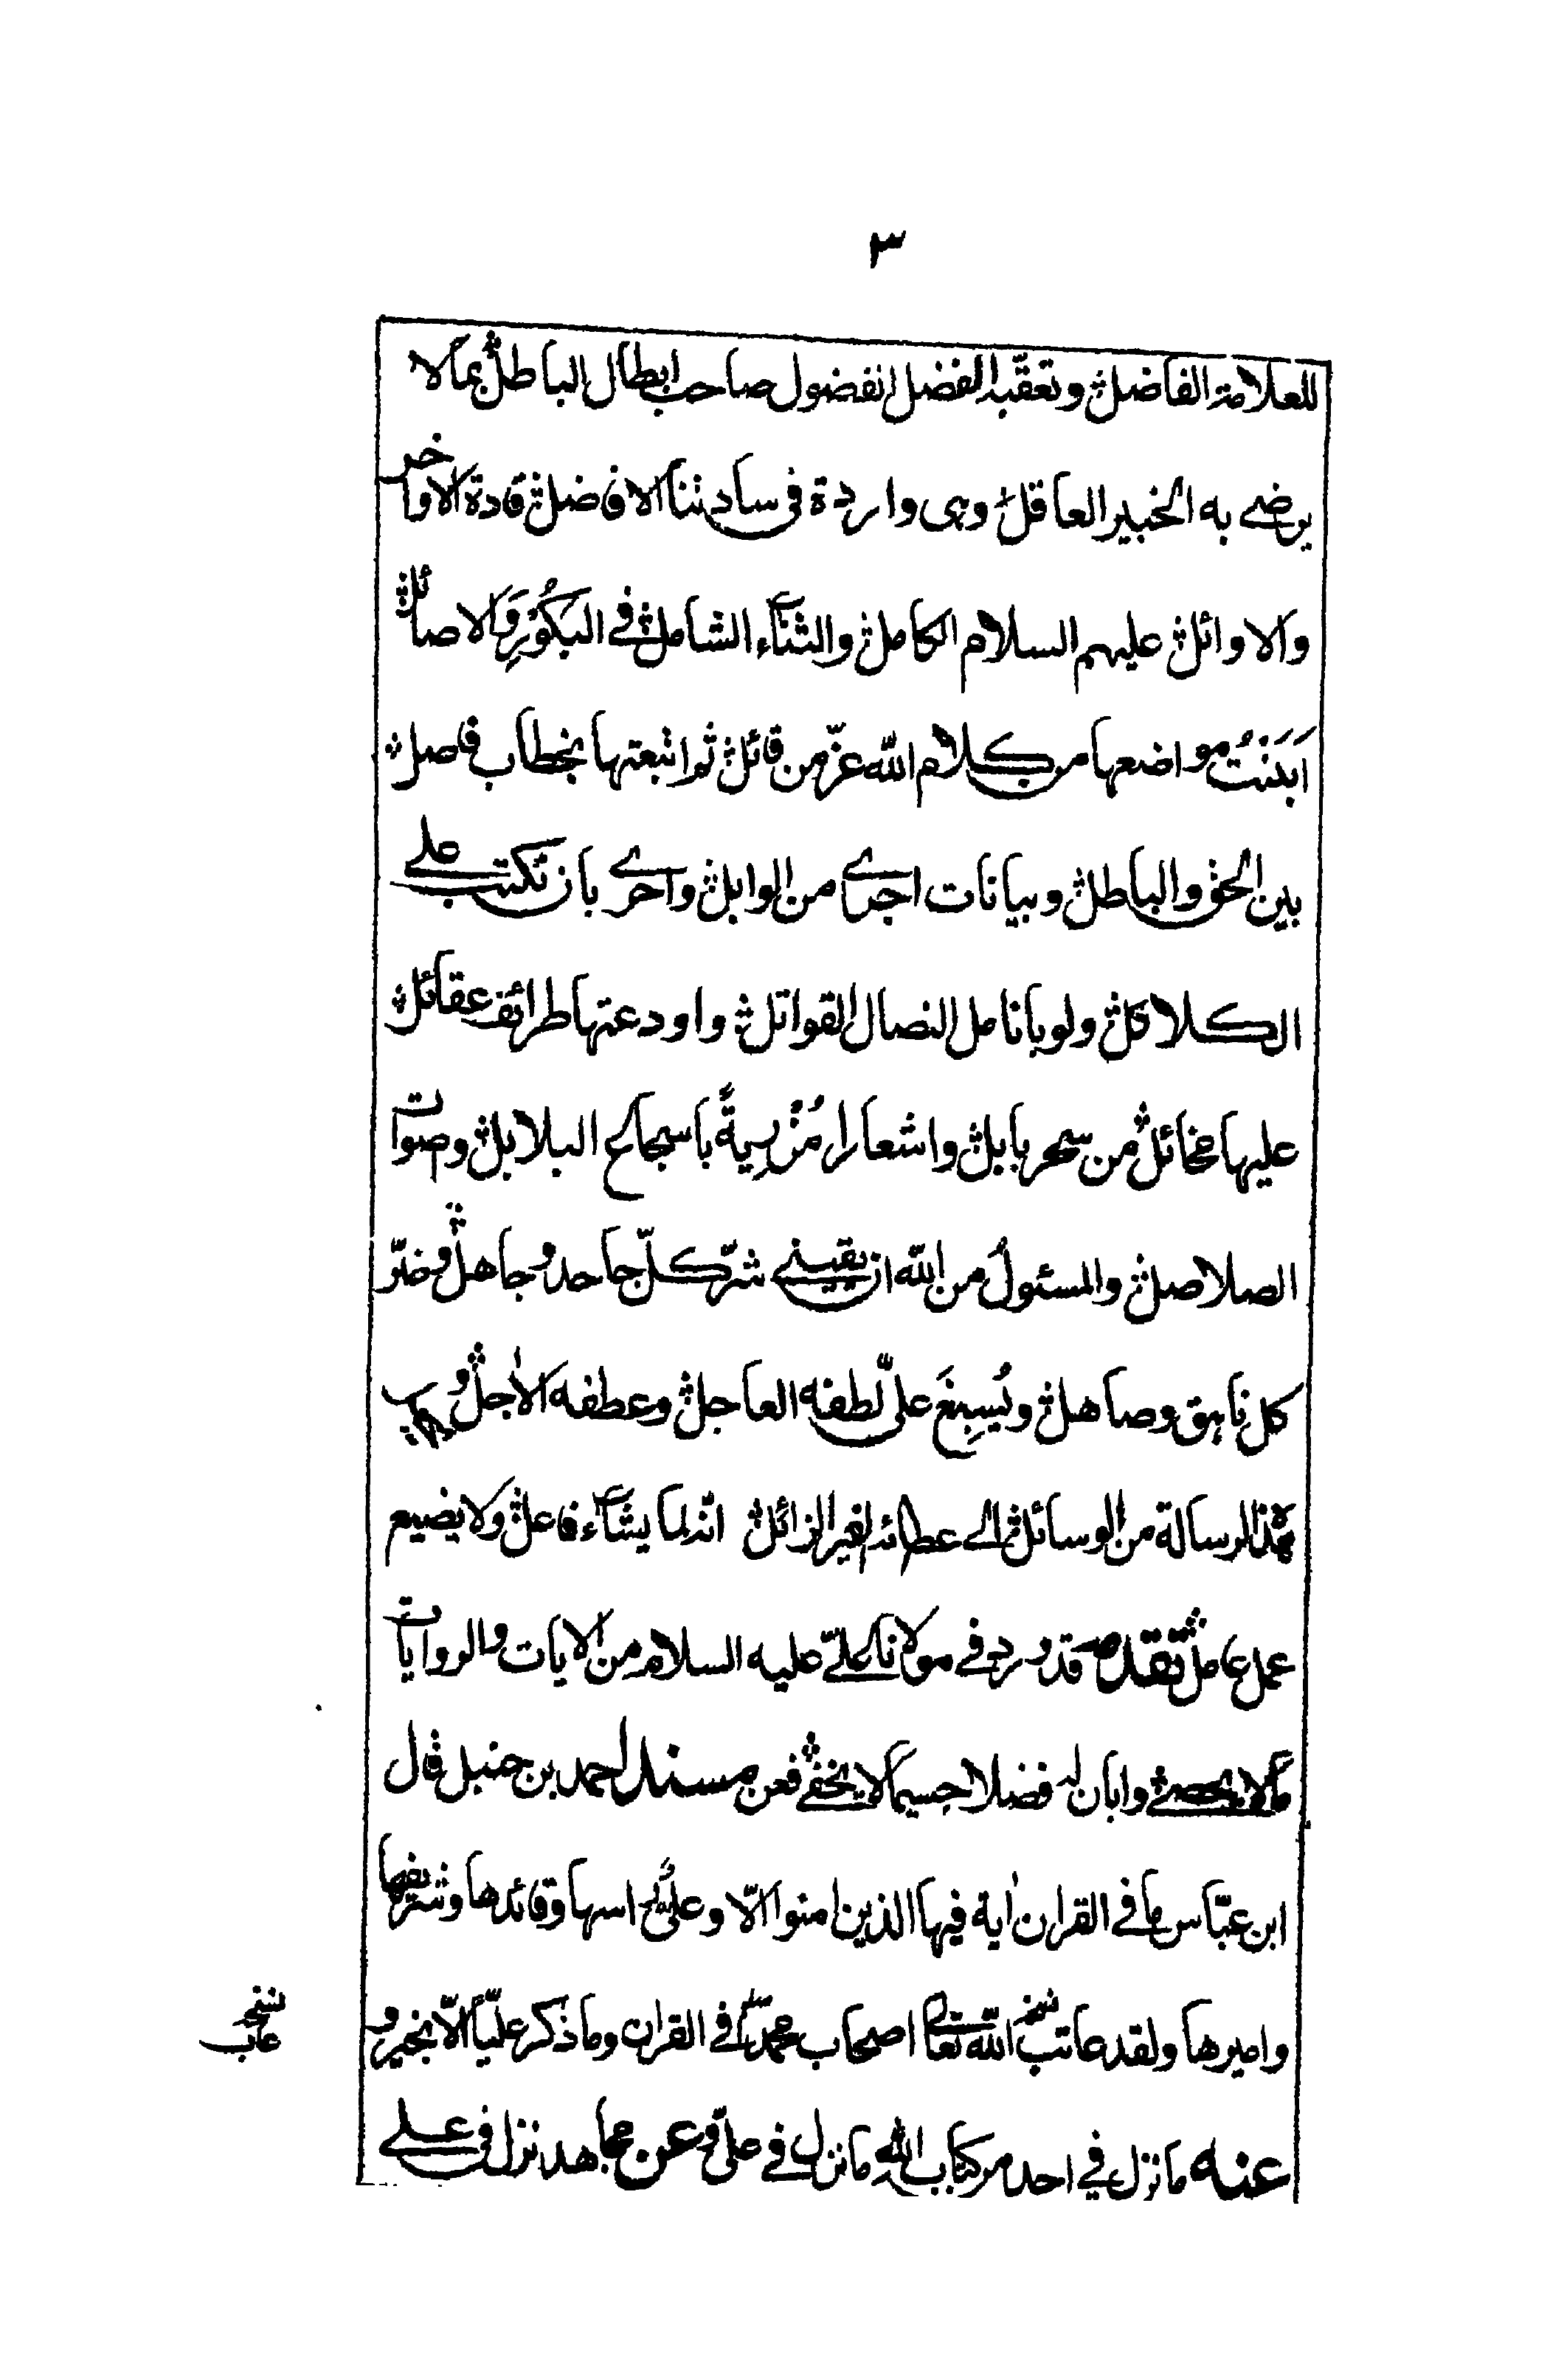 ٣
للعلامة الفاضل وتعقبه الفضل الفضول صاحب ابطال الباطل بمالا
يرضى به الخبير العاقل وهى واردة فى سادتنا الافاضل قادة الاواخر
والاوائل عليهم السلام الكامل والثناء الشامل فى البُكُوْرِ وَالاصائل
اَبَنْتُ مواضعها من كلام الله عزّ من قائل ثم اتبعتها بخطاب فاصل
بين الحق والباطل وبيانات اجرى من الوابل واحرى بان تكتب على
الكلاكل ولو بانامل النصال القواتل واودعتها طرائف عقائل
عليها مخائل من سحر بابل واشعارا مُزْرِيةً باسجاع البلابل وصوات
الصلاصل والمسئول من الله ان يقينى شرّ كلّ جاحد وجاهل وضرّ
كل ناهق وصاهل ويُسبِغَ علىّ لطفه العاجل وعطفه الاٰجل و
هذه الرسالة من الوسائل الى عطائه الغير الزائل انّه لما يشاء فاعل ولا يضيع
عمل عامل تقدمه قد ورد فى مولانا علىّ عليه السلام من الايات والروايات
مالا يحصى وابان له فضلا جسيما لا يخفى فعن مسند احمد بن حنبل قال
ابن عبّاس ما فى القران اٰية فيها الذين امنوا الّا وعلىٌّ راسها وقائدها وشريفها
واميرها ولقد عاتب الله تعالى اصحاب محمّد فى القران وما ذكر عليّا الّا بخير و
نسخه
عاب
عنه ما نزل فى احد من كتاب الله ما نزل فى علىّ وعن مجاهد نزل فى على